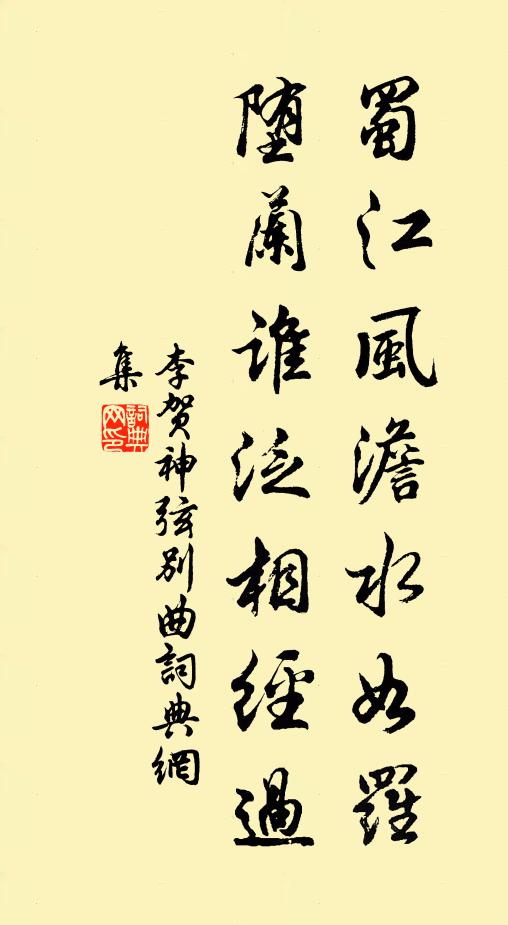 蜀江風澹水如羅
墮蘭誰泛相經過
李賀神弦别曲詞典網
集
詞典
网印